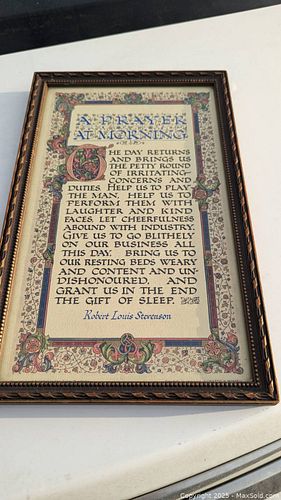 A PRAYER
AT MORNING
THE DAY RETURNS
AND BRINGS US
THE PETTY ROUND
OF IRRITATING
CONCERNS AND
DUTIES. HELP US TO PLAY
THE MAN, HELP US TO
PERFORM THEM WITH
LAUGHTER AND KIND
FACES. LET CHEERFULNESS
ABOUND WITH INDUSTRY.
GIVE US TO GO BLITHELY
ON OUR BUSINESS ALL
THIS DAY. BRING US TO
OUR RESTING BEDS WEARY
AND CONTENT AND UN-
DISHONOURED, AND
GRANT US IN THE END
THE GIFT OF SLEEP.
Robert Louis Stevenson
Copyright 2025 - MaxSold.com